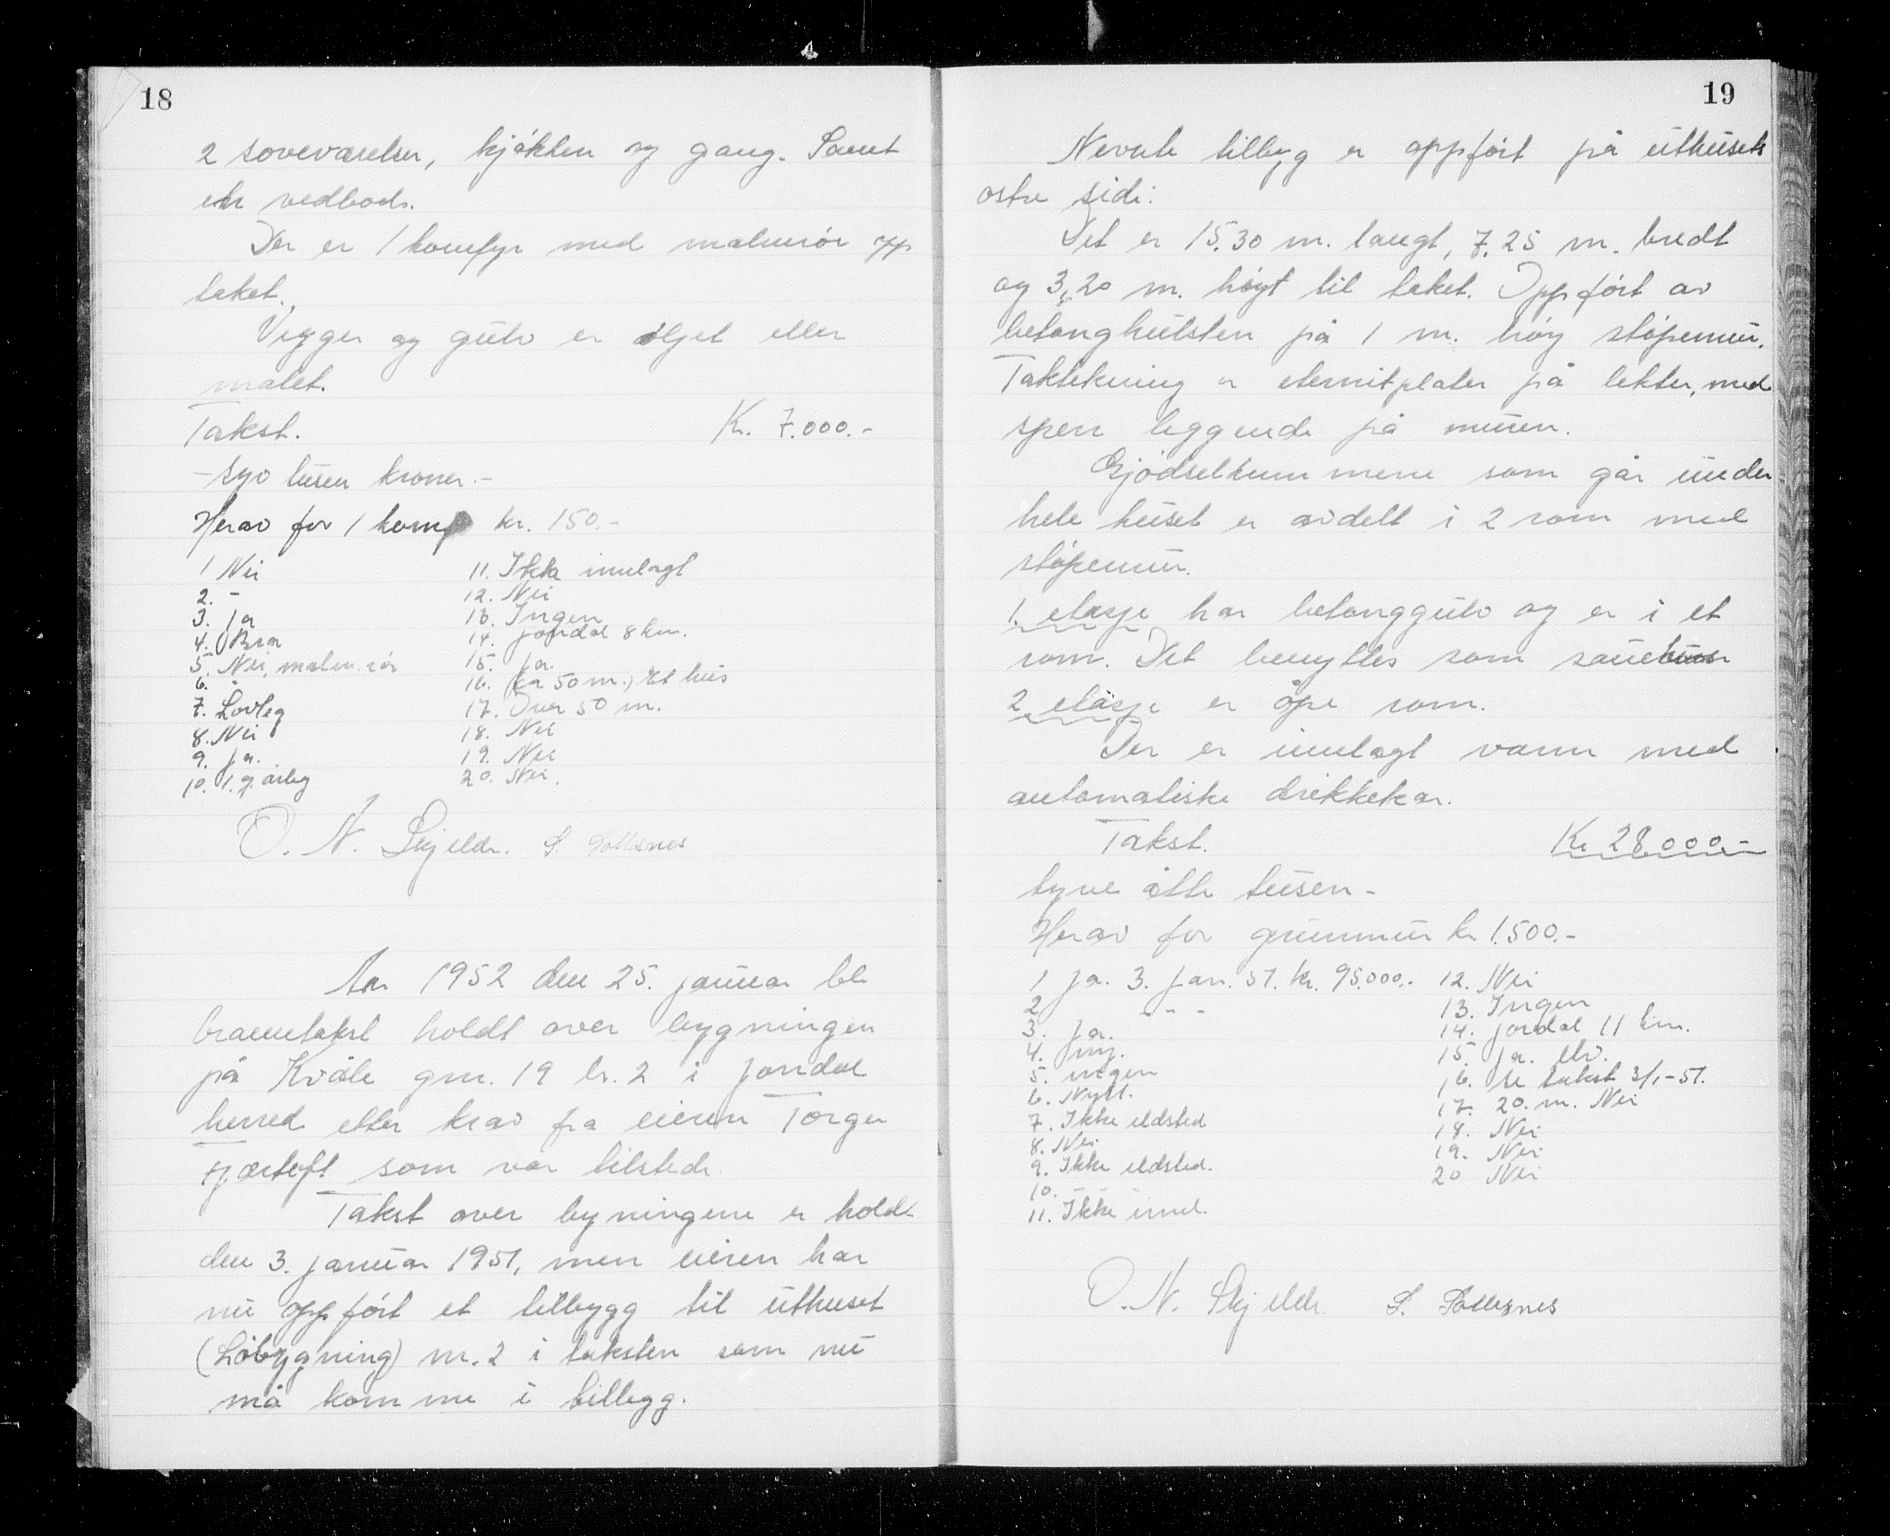 18
2 soveværelser, kjøkken og gang. Samt
en vedbod.
Der er 1 komfyr med malmrör opp
taket.
Vegger og gulv er oljet eller
malet.
Takst. Kr. 7.000.-
- syv tusen kroner.-
Herav for 1 komf kr. 150.-
1 Nei
2. -
3. Ja
4. Bra
5. Nei, malm. rör
6. -
7. Lovleg
8. Nei
9. Ja.
10. 1. g. årleg
11. Ikke innlagt
12. Nei
13. Ingen
14. Jondal 8 km.
15. Ja.
16. Ca 50 m., et hus
17. Over 50 m.
18. Nei
19. Nei
20. Nei.
O. N. Skjelde. S. Sollesnes
År 1952 den 25. januar ble
branntakst holdt over bygningen
på Kvåle gnr. 19 br. 2 i Jondal
herred etter krav fra eieren Torger
som var tilstede.
Takst over bygningene er holdt
den 3. januar 1951, men eieren har
nu oppfört et tilbygg til uthuset
(Löbygning) nr. 2 i taksten som nu
må komme i tillegg.
19
Nevnte tilbygg er oppfört på uthusets
östre side.
Det er 15.30 m. langt, 7.25 m. bredt
og 3,20 m. höyt til taket. Oppfört av
betonghulsten på 1 m. höy stöpemur.
Taktekning er eternitplater på lekter, med
sperr liggende på muren.
Gjödselkummene som går under
hele huset er avdelt i 2 rom med
stöpemur.
1. etasje har betonggulv og er i et
rom. Det benyttes som sauehus
2 etasje er åpe rom.
Der er innlagt vann med
automatiske drikkekar.
Takst. Kr 28000.-
tyve åtte tusen -
Herav for grunnmur kr. 1.500.-
1 Ja. 3. Jan. 51. kr. 95.000.-
2 - - -
3. Ja.
4. ny.
5. ingen
6. Nytt.
7. Ikke ildsted
8. Nei
9. Ikke ildsted.
10. - -
11. Ikke innl.
12. Nei
13. Ingen
14. Jondal 11 km.
15. Ja. elv.
16. se takst 3/1-51.
17. 20. m. Nei
18. Nei
19. Nei
20 Nei
O. N. Skjelde S. Sollesnes